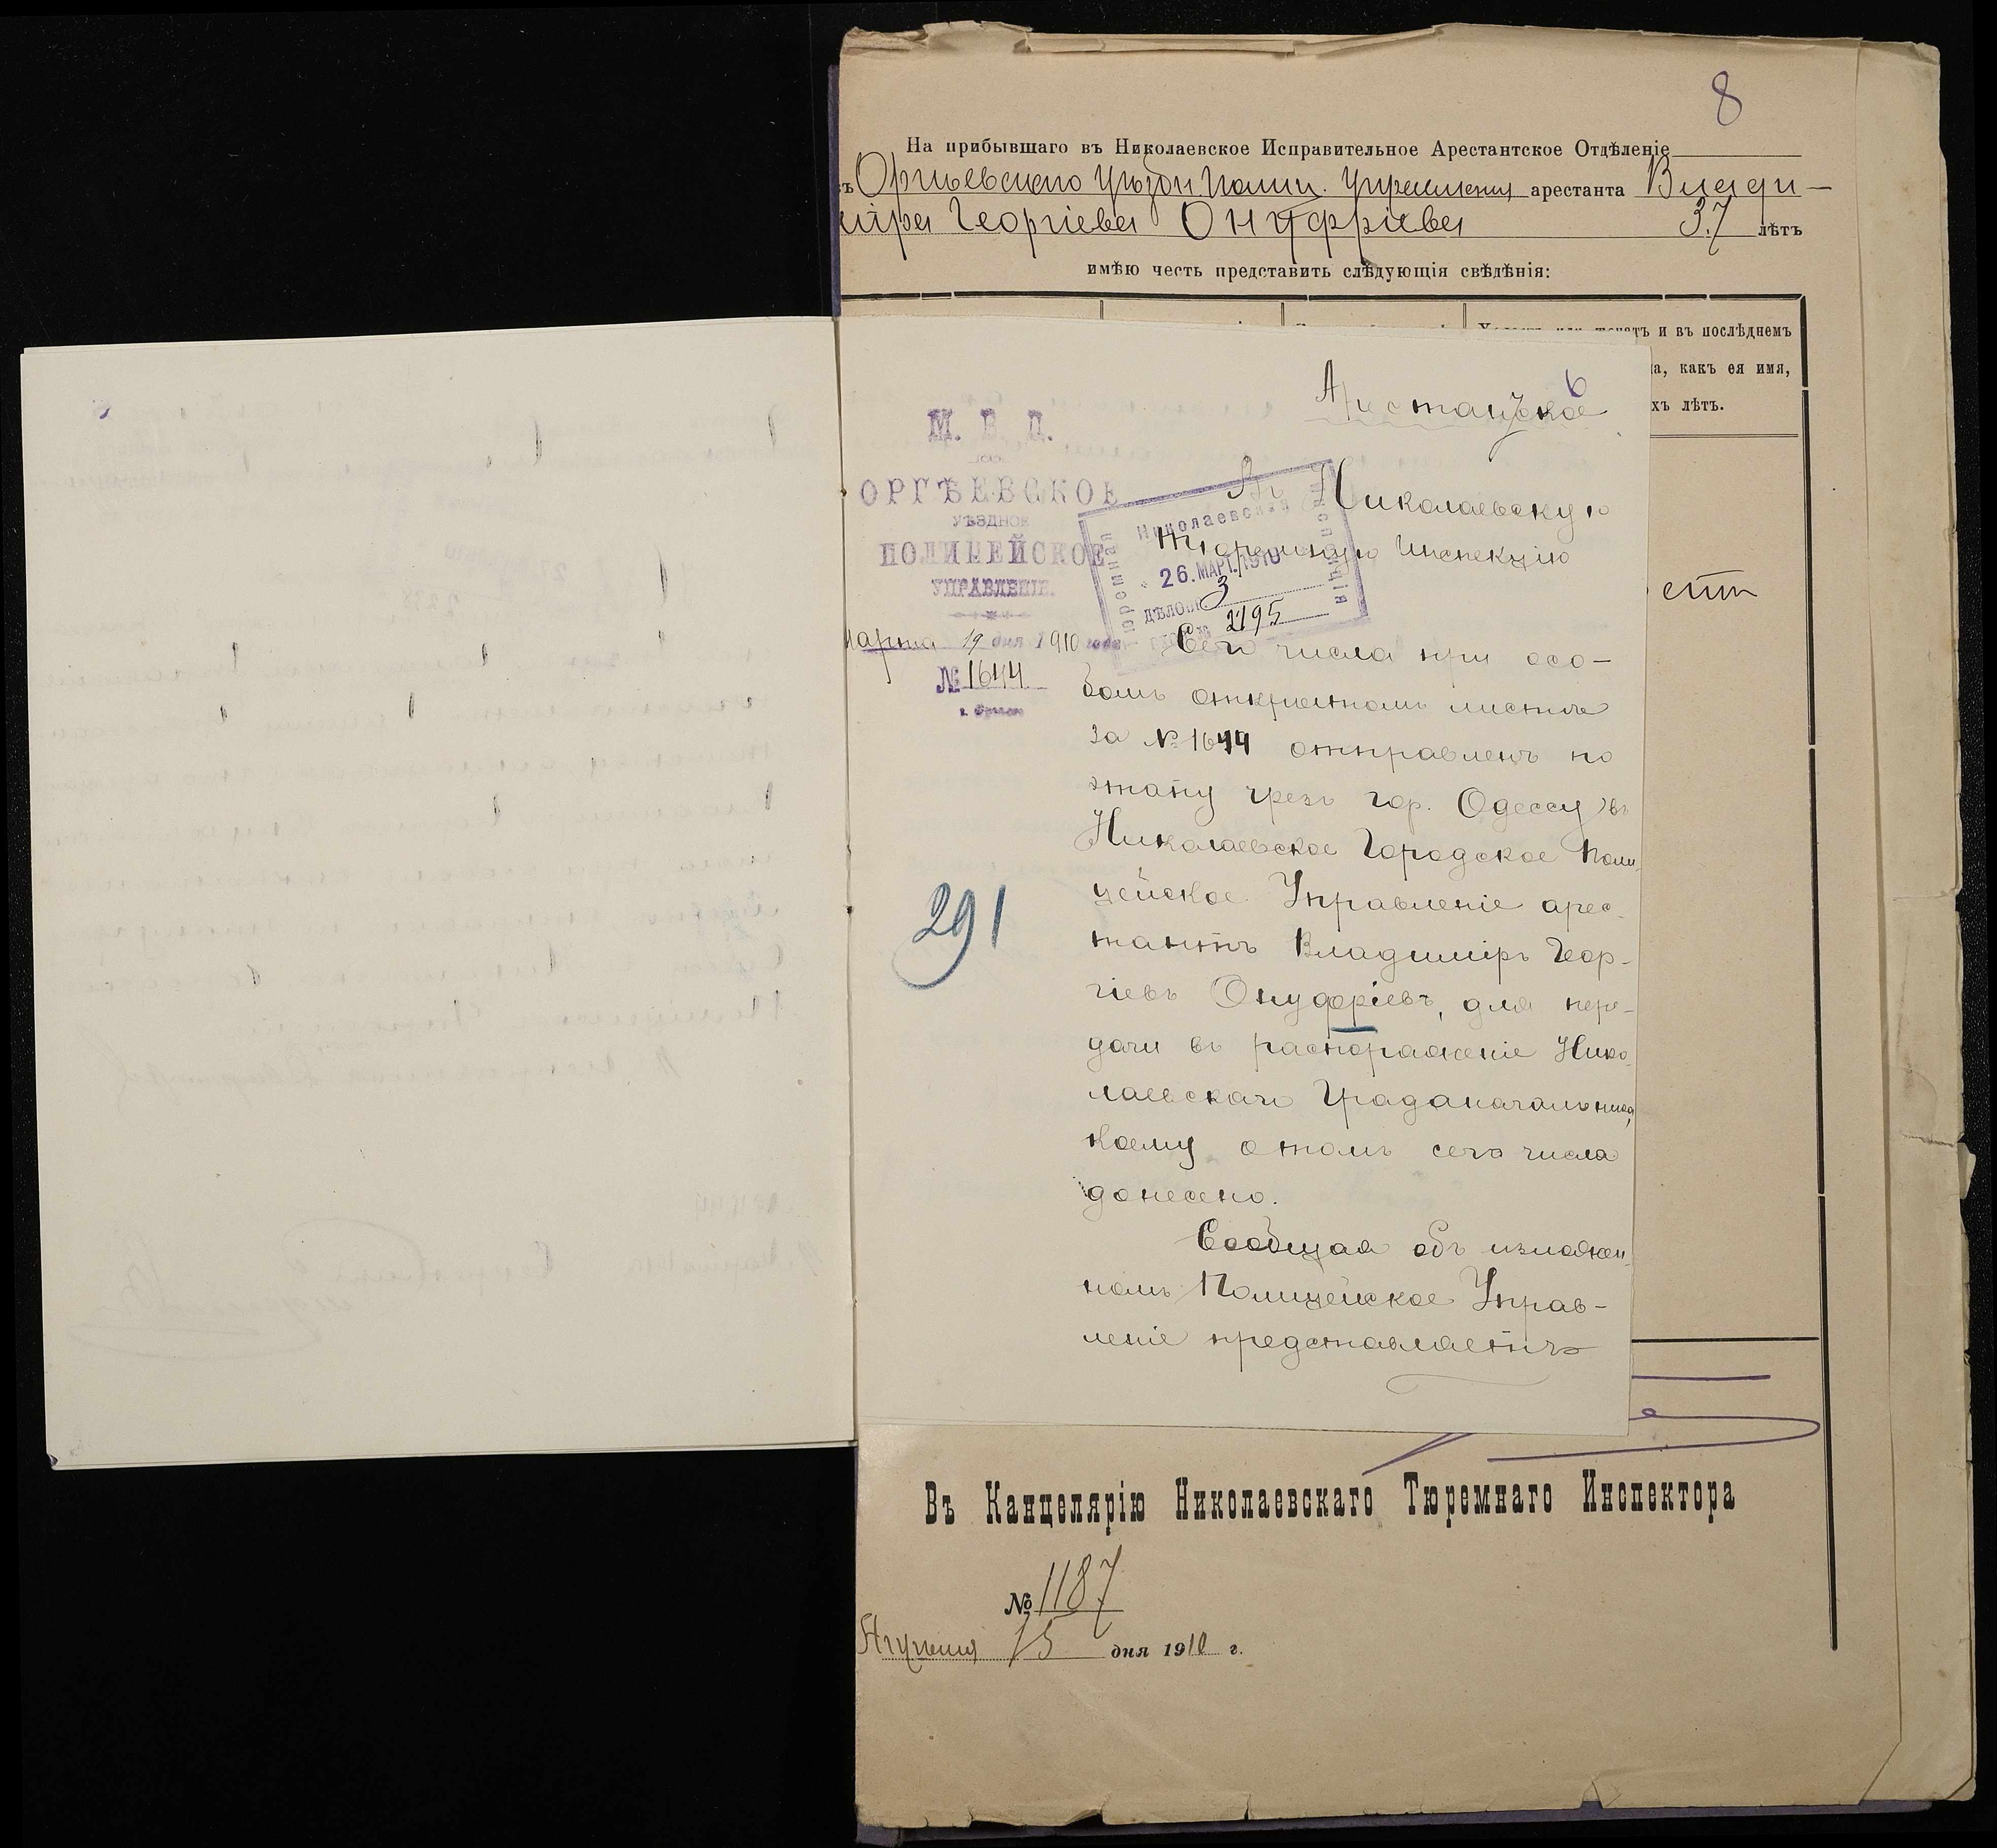 8
На прибывшаго въ Николаевское Исправительное Арестантское Отдѣленіе
Оргѣевскаго Уѣздн. Полиц. Управленія арестанта Влади–
міра Георгіева Онуфріева 37 лѣтъ
имѣю честь представить слѣдующія свѣдѣнія:
и въ послѣднемъ
какъ ея имя,
лѣтъ.
6
Арестантское
М. В. Д.
ОРГѢЕВСКОЕ
УѢЗДНОЕ
ПОЛИЦЕЙСКОЕ
УПРАВЛЕНІЕ.
Марта 19 дня 1910 года
№ 1644
г. Оргѣевъ
Николаевская
Тюремная
Инспекція
26. МАРТ. 1910
ДѢЛО № 3
2195
Въ Николаевскую
Тюремную Инспекцію
Сего числа при осо–
бомъ открытомъ листѣ
за № 1644 отправленъ по
этапу чрезъ гор. Одессу въ
Николаевское Городское Поли-
цейское Управленіе арес-
тантъ Владиміръ Геор-
гіевъ Онуфріевъ, для пере-
дачи въ распоряженіе Нико-
лаевскаго Градоначальника,
коему о томъ сего числа
донесено.
Сообщая объ изложен-
номъ Полицейское Управ–
леніе представляетъ
291
Въ Канцелярію Николаевскаго Тюремнаго Инспектора
№ 1187
15 дня 1910 г.